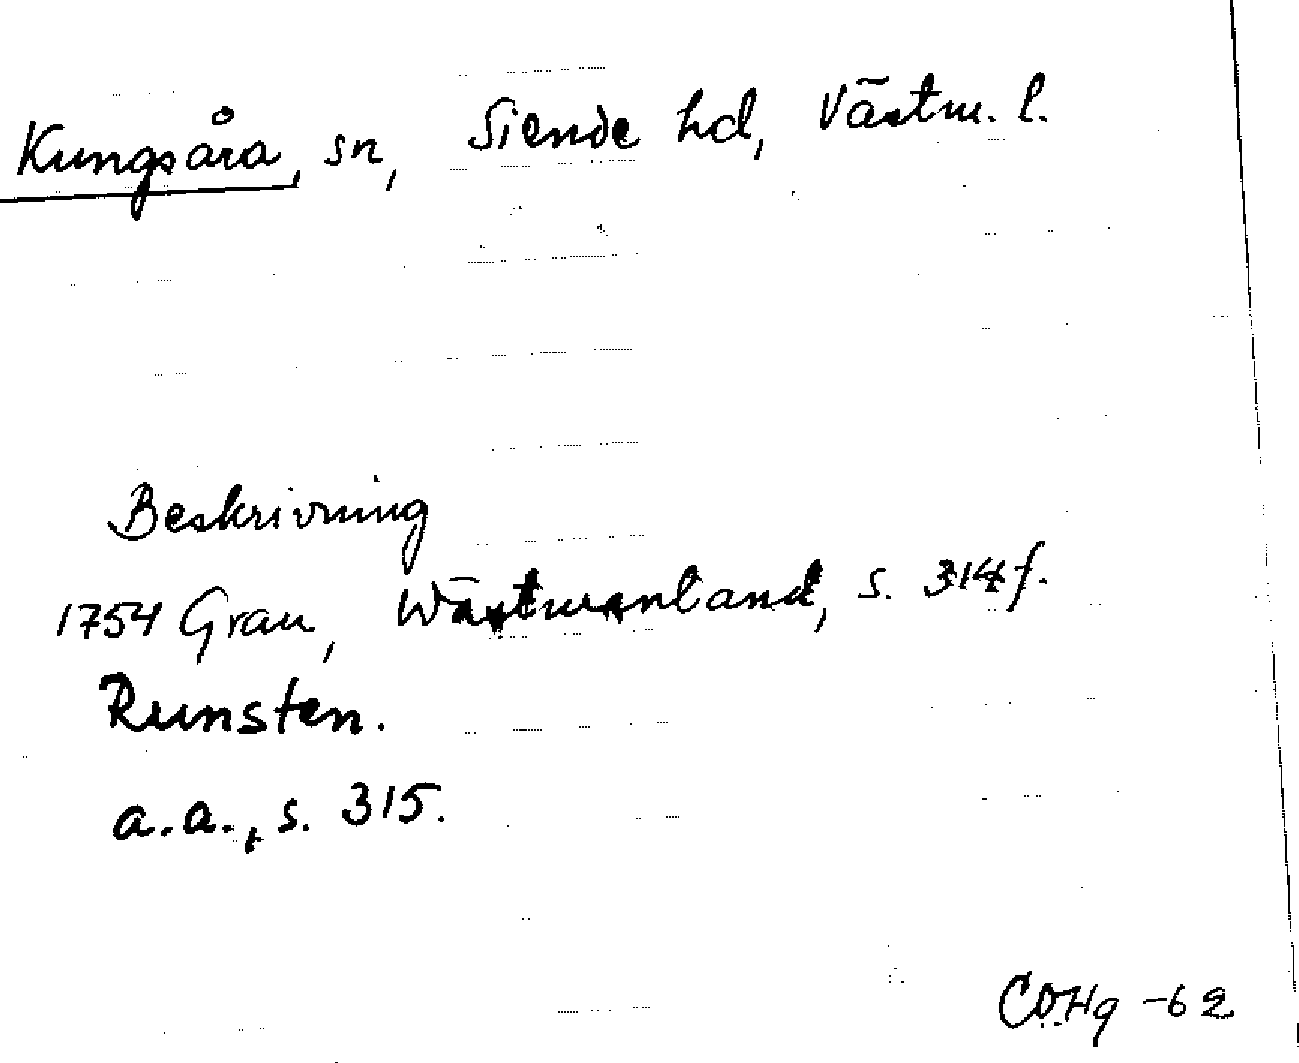 Kungsåra, sn, Siende hd, Västm. l.
Beskrivning
1754 Grau, Wästmanland, s. 314 f.
Runsten.
a.a., s. 315.
COHg -62